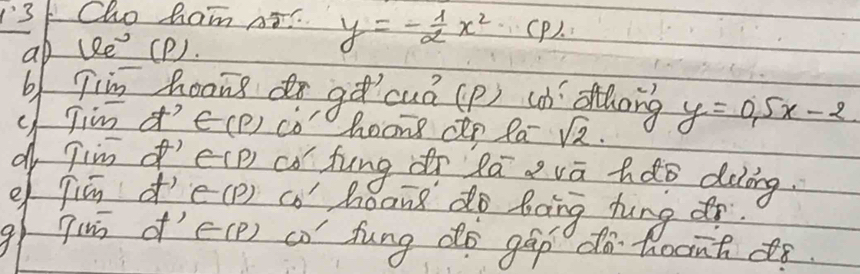 1.3 Cho hàm số: y = -1/2 x² (P).
a) Vẽ (P).
b) Tìm hoành độ gđ' của (P) với đthẳng y = 0,5x - 2.
c) Tìm đ' ∈ (P) có hoành độ là √2.
d) Tìm đ' ∈ (P) có tung độ là 2 và hđộ dương.
e) Tìm đ' ∈ (P) có hoành độ bằng tung độ.
g) Tìm đ' ∈ (P) có tung độ gấp đôi hoành độ.